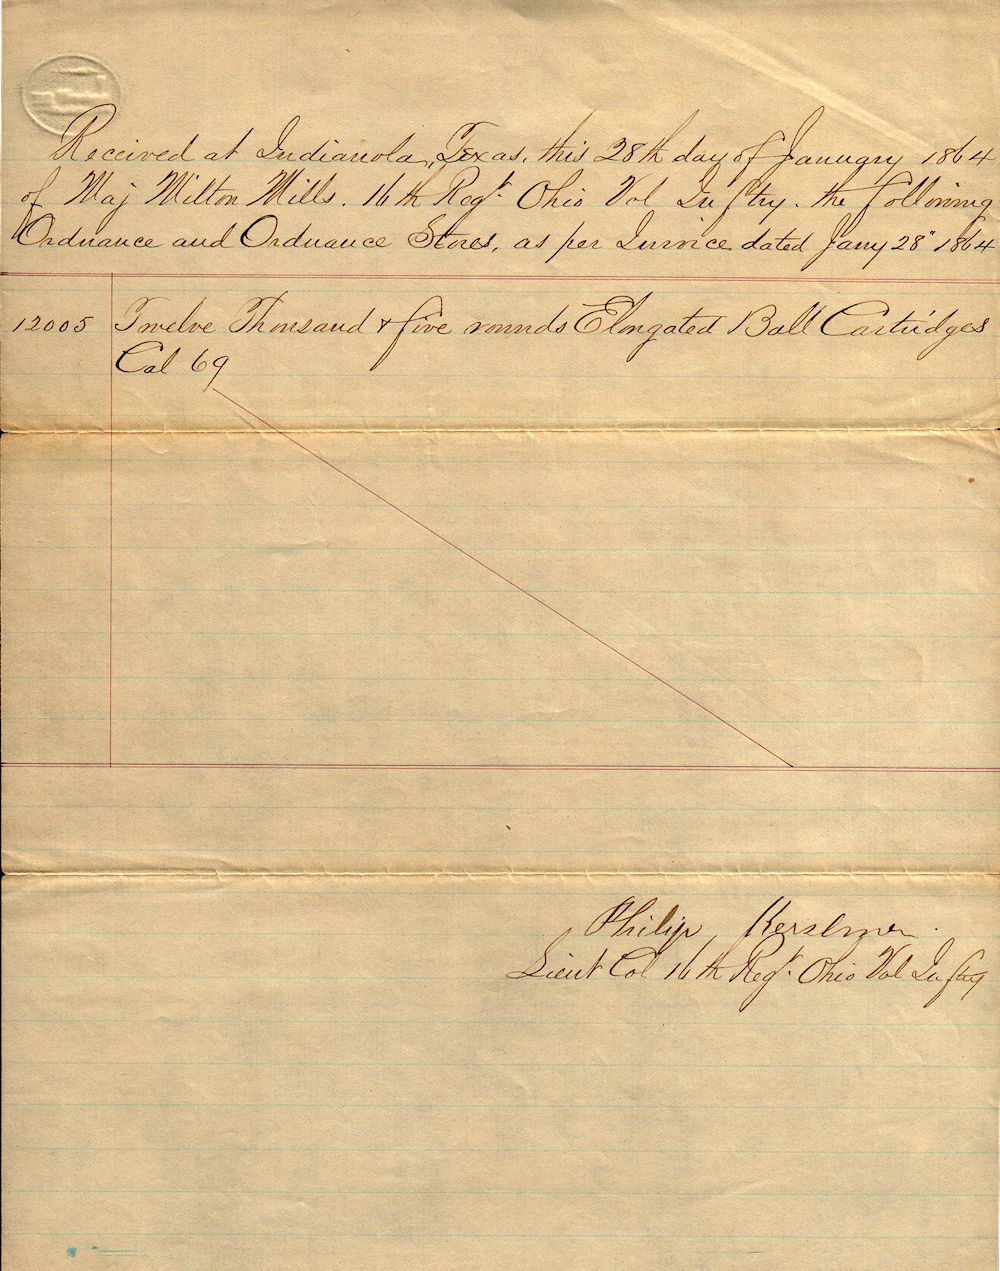 Received at Indianola, Texas, this 28th day of January 1864
of Maj Milton Mills. 16th Regt Ohio Vol Inftry. the following
Ordnance and Ordnance Stores, as per Invoice dated Jany 28" 1864
12005 Twelve Thousand & five rounds Elongated Ball Cartridges
Cal 69
Philip Kershner
Lieut Col 16th Regt Ohio Vol Inftry